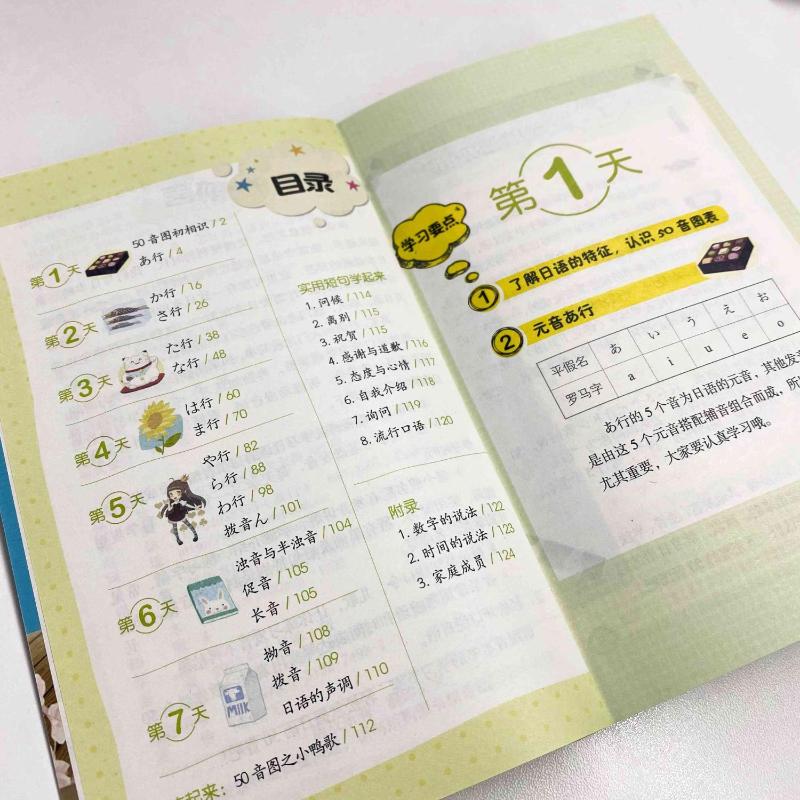 目录
第1天
50音图初相识 / 2
あ行 / 4
第2天
か行 / 16
さ行 / 26
第3天
た行 / 38
な行 / 48
第4天
は行 / 60
ま行 / 70
第5天
や行 / 82
ら行 / 88
わ行 / 98
拨音ん / 101
第6天
浊音与半浊音 / 104
促音 / 105
长音 / 105
第7天
MILK
拗音 / 108
拨音 / 109
日语的声调 / 110
起来：50音图之小鸭歌 / 112
实用短句学起来
1. 问候 / 114
2. 离别 / 115
3. 祝贺 / 115
4. 感谢与道歉 / 116
5. 态度与心情 / 117
6. 自我介绍 / 118
7. 询问 / 119
8. 流行口语 / 120
附录
1. 数字的说法 / 122
2. 时间的说法 / 123
3. 家庭成员 / 124
第1天
学习要点
1 了解日语的特征，认识50音图表
2 元音あ行
平假名 あ い う え お
罗马字 a i u e o
あ行的5个音为日语的元音，其他发
是由这5个元音搭配辅音组合而成，所
尤其重要，大家要认真学习哦。